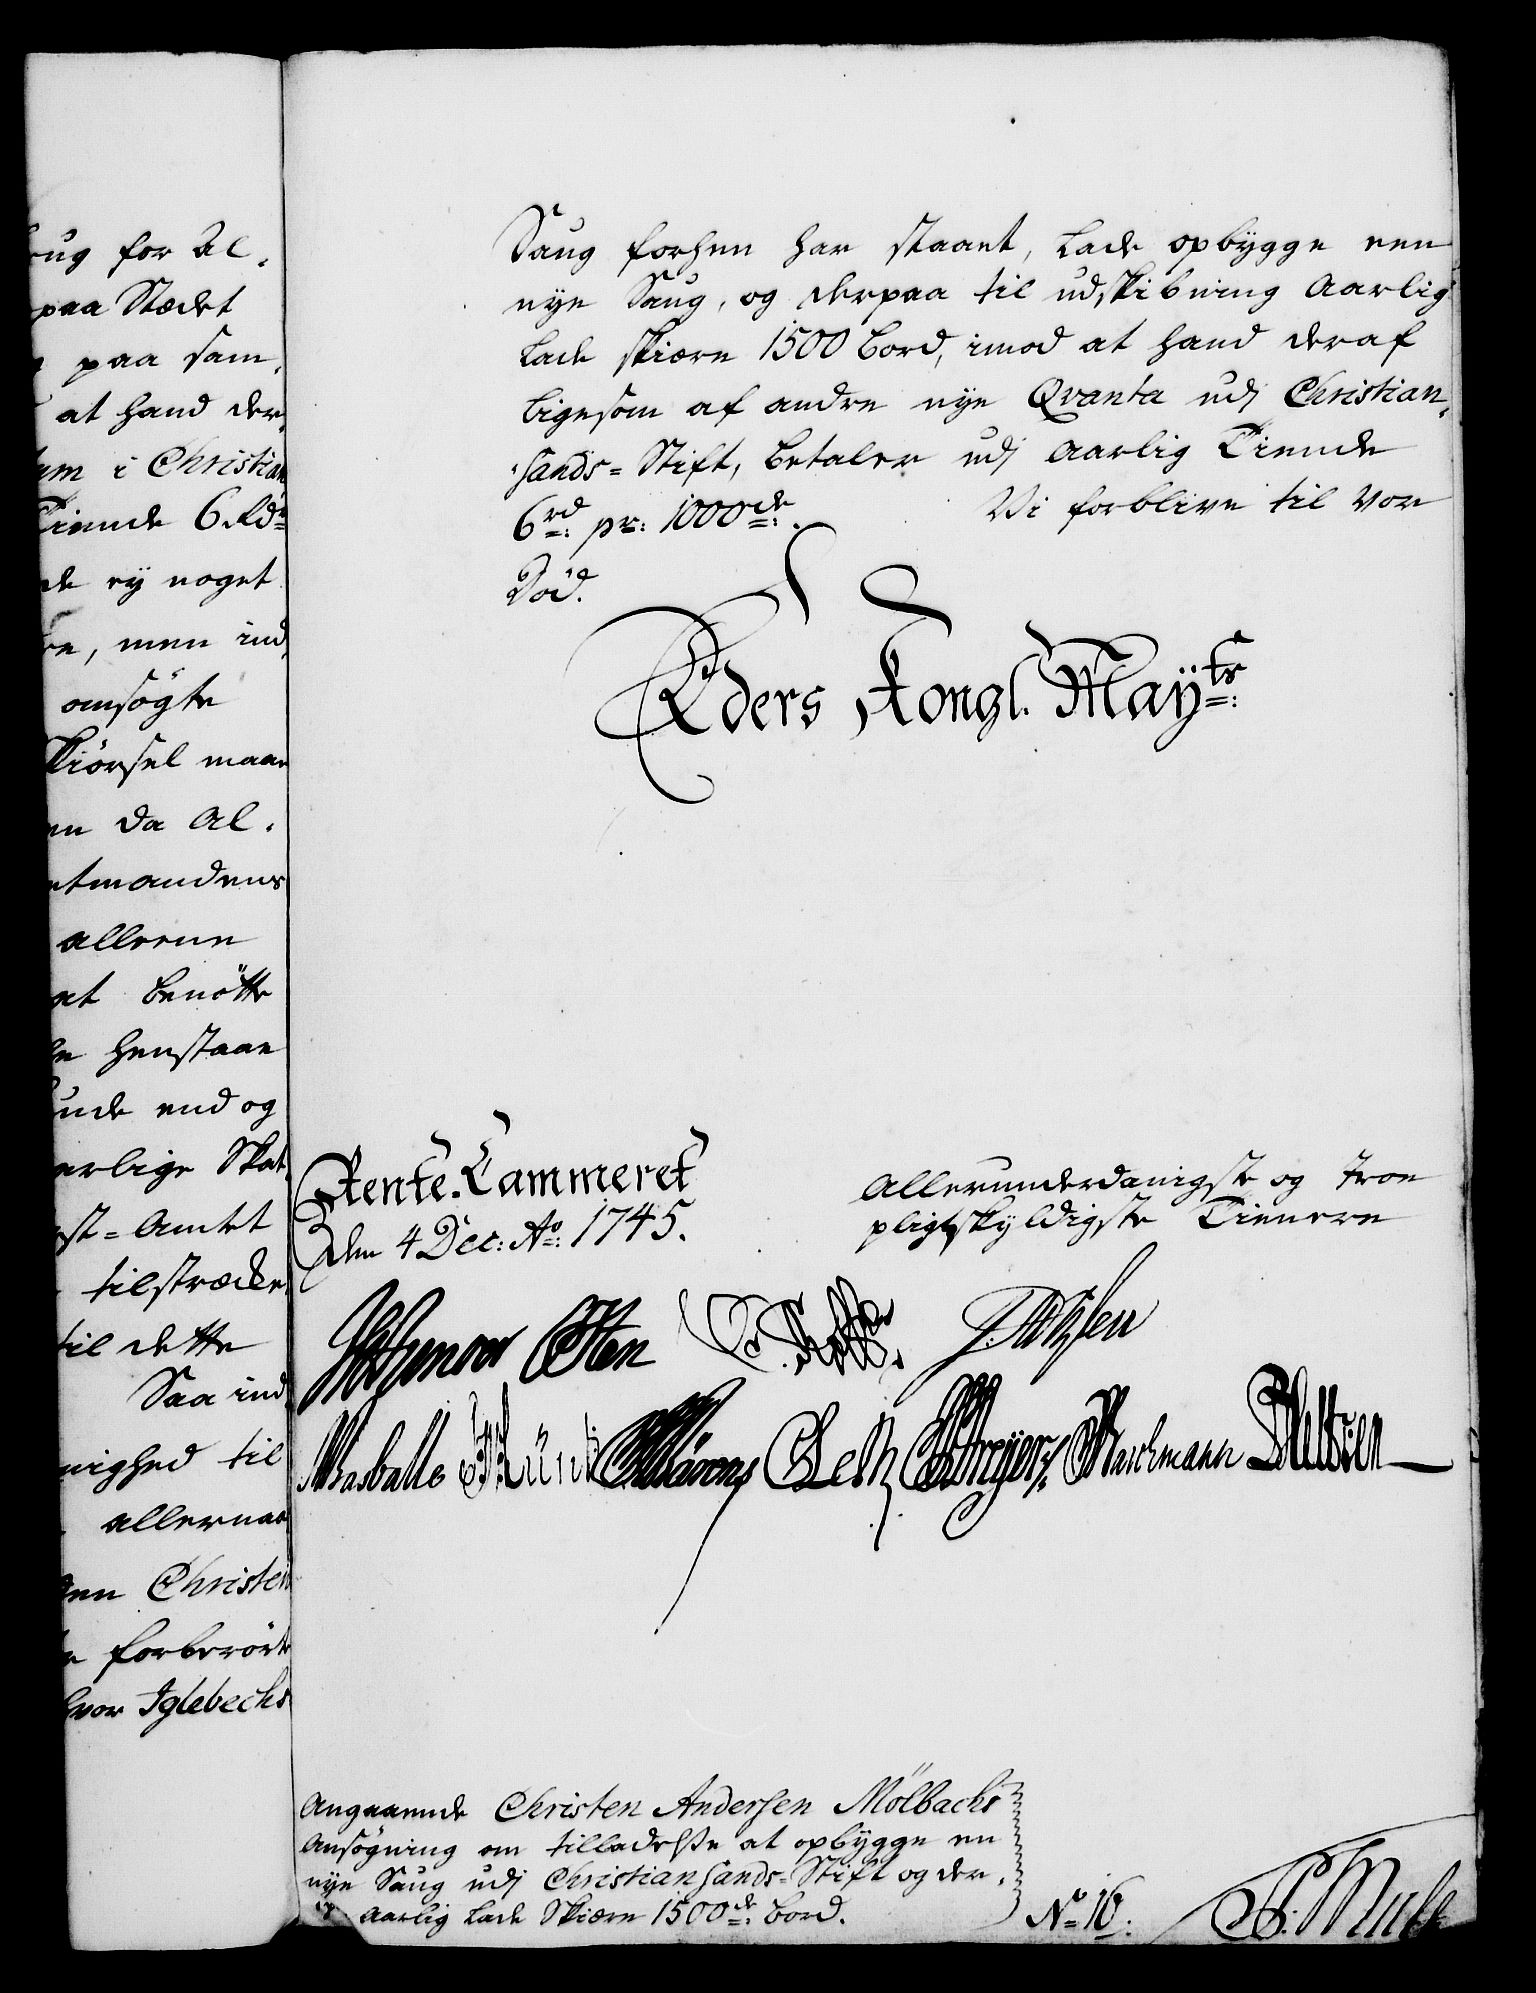 rug for Al-
paa Stædet
paa sam,
at hand der,
tum i Christian
Tiende 6 Rd
de ey noget
re, men ind,
omsögte
Skiörsel maae
en da Al-
etmandens
allerne
at benötte
henstaae
unde end og
erlige Skat,
st=Amtet
tilstræder
til dette
Saa ind,
nighed til
allernaa
Christen
forberörte
hvor Iglebechs
Saug forhen har staaet, lade opbÿgge een
nÿe Saug, og derpaa til udskibning Aarlig
lade skiære 1500 bord, imod at hand deraf
ligesom af andre nÿe Qvanta udj Christian,
sands=Stift, betaler udj Aarlig Tiende
6rd: pr: 1000de:. Vi forblive til vor
Död.
Eders Kongl. Maÿts:
Rente-Cammeret
den 4 Dec: Ao: 1745.
Allerunderdanigste og troe
pligtskÿldigste Tienere
Angaaende Christen Andersen Mölbachs
Ansögning om tilladelse at opbÿgge en
nÿe Saug udj Christiansands=Stift og der,
aarlig lade Skiære 1500de: bord.
No 16.